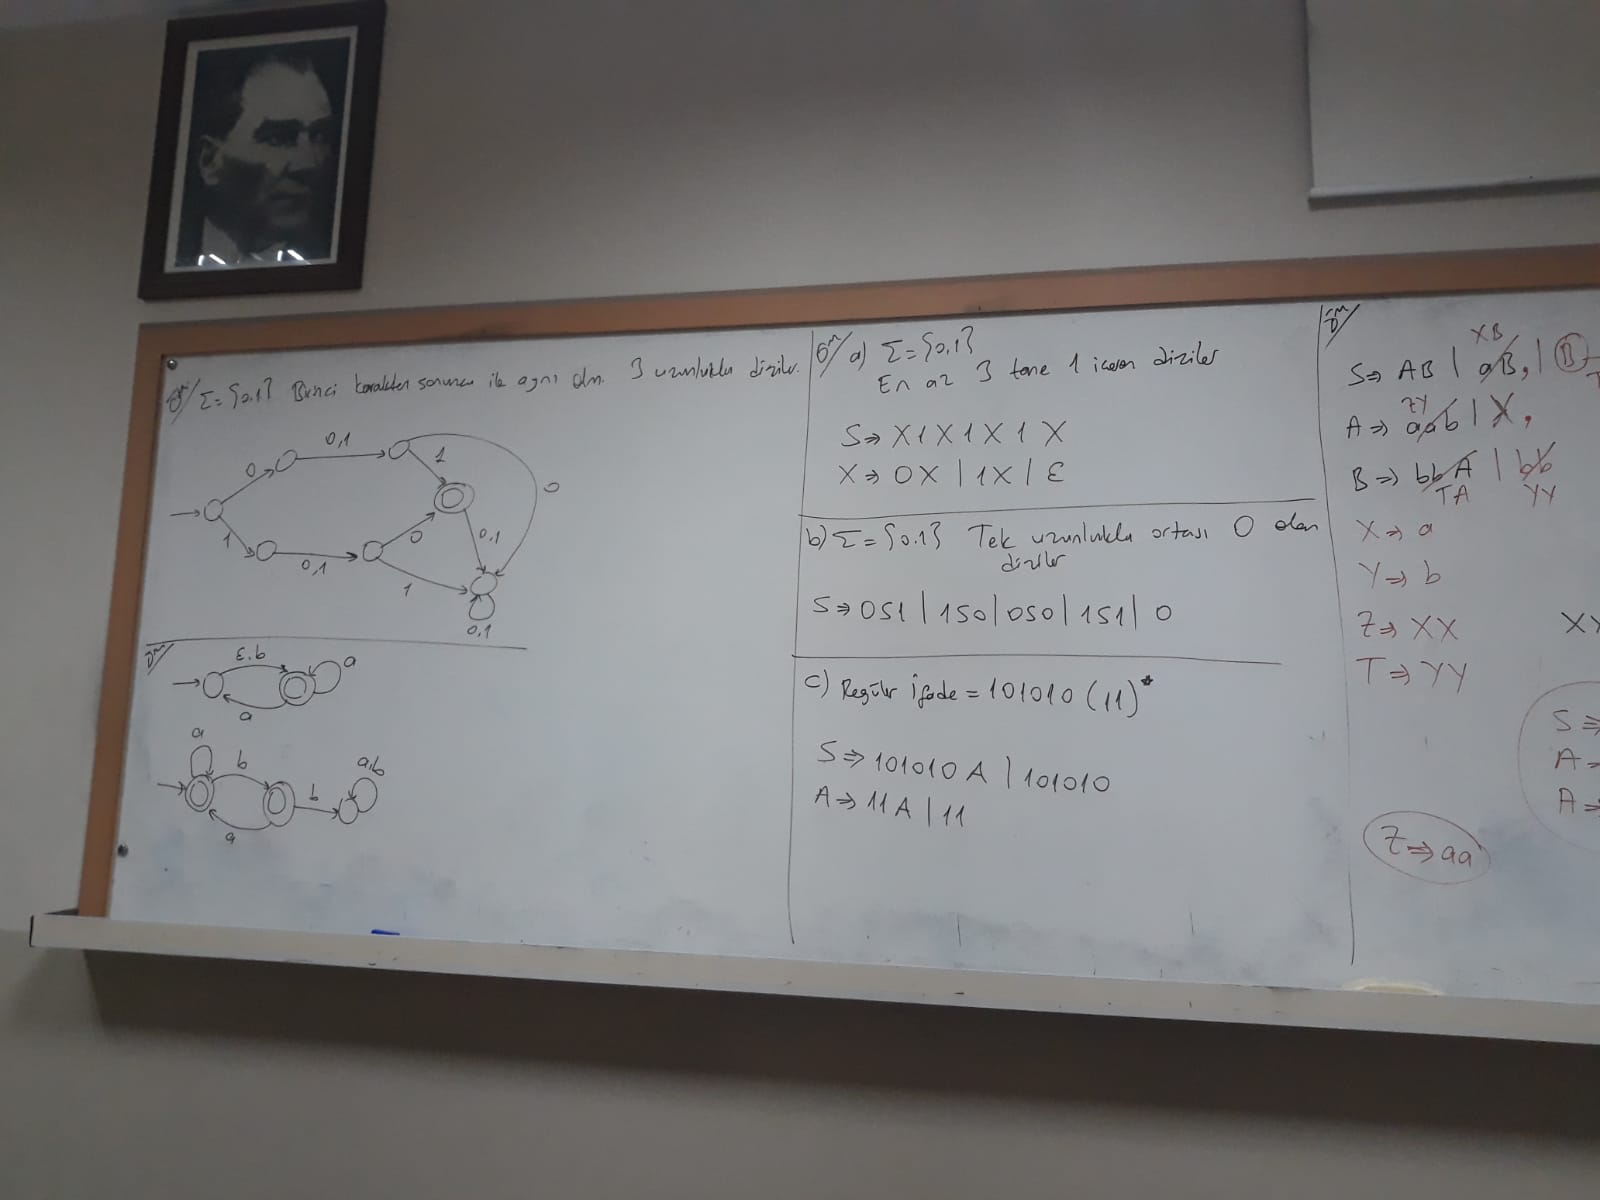 Ör/ Σ={0,1} Birinci karakter sonuncu ile aynı olm. 3 uzunluklu diziler.
0,1
0
1
0
1
0,1
0
0,1
1
0,1
Ör/
ε,b
a
a
a
b
a,b
b
a
Ör/ a) Σ={0,1}
En az 3 tane 1 içeren diziler
S⇒ X1X1X1X
X⇒ 0X | 1X | ε
b) Σ={0,1} Tek uzunluklu ortası 0 olan
diziler
S⇒ 0S1 | 1S0 | 0S0 | 1S1 | 0
c) Regüler ifade = 101010 (11)*
S⇒ 101010A | 101010
A⇒ 11A | 11
Ör/
XB
S⇒ AB | aB, | B
ZY
A⇒ aab | X,
B⇒ bbA | bb
TA YY
X⇒ a
Y⇒ b
Z⇒ XX
T⇒ YY
S⇒
A
A⇒
Z⇒aa